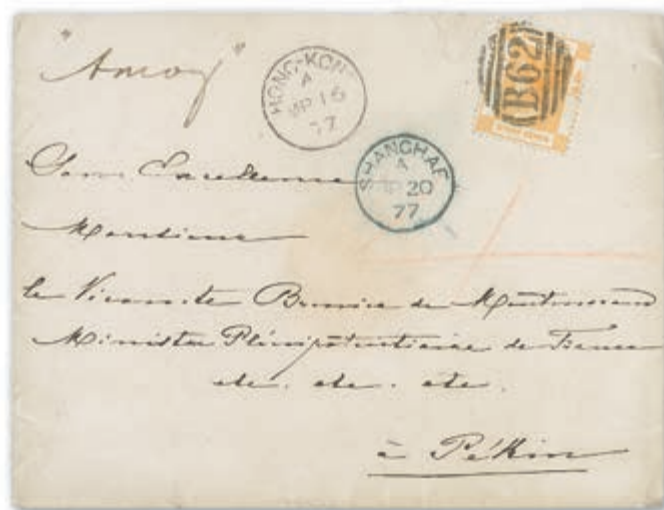 "Amoy"
HONG-KONG
A
AP 16
77
B62
SHANGHAE
A
AP 20
77
Son Excellence
Monsieur
le Vicomte Brenier de Montmorand
Ministre Plénipotentiaire de France
etc. etc. etc.
à Pékin